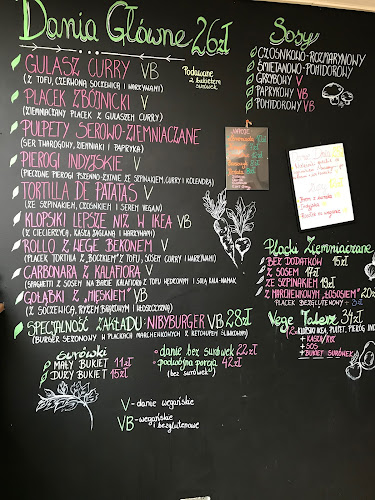 Dania Główne 26zł
Podawane
z bukietem
surówek
GULASZ CURRY VB
(Z TOFU, CZERWONĄ SOCZEWICĄ I WARZYWAMI)
PLACEK ZBÓJNICKI V
(ZIEMNIACZANY PLACEK Z GULASZEM CURRY)
PULPETY SEROWO-ZIEMNIACZANE
(SER TWAROGOWY, ZIEMNIAKI I PAPRYKA)
PIEROGI INDYJSKIE V
(PIECZONE PIEROGI PSZENNO-ŻYTNIE ZE SZPINAKIEM, CURRY I KOLENDRĄ)
TORTILLA DE PATATAS V
(ZE SZPINAKIEM, CZOSNKIEM I SEREM VEGAN)
KLOPSIKI LEPSZE NIŻ W IKEA VB
(Z CIECIERZYCĄ, KASZĄ JAGLANĄ I WARZYWAMI)
ROLLO Z WEGE BEKONEM V
(PLACEK TORTILLA Z "BOCZKIEM" Z TOFU, SOSEM CURRY I WARZYWAMI)
CARBONARA Z KALAFIORA V
(SPAGHETTI Z SOSEM NA BAZIE KALAFIORA Z TOFU WĘDZONYM I SOLĄ KALA-NAMAK
GOŁĄBKI Z "MIĘSKIEM" VB
(Z SOCZEWICĄ, RYŻEM BRĄZOWYM I WŁOSZCZYZNĄ)
SPECJALNOŚĆ ZAKŁADU: NIBYBURGER VB 28zł
(BURGER SEZONOWY W PLACKACH MARCHEWKOWYCH Z KETCHUPEM ŚLIWKOWYM)
Surówki
MAŁY BUKIET 11zł
DUŻY BUKIET 15zł
danie bez surówek 22zł
podwójna porcja 42zł
(bez surówek)
V - danie wegańskie
VB - wegańskie
i bezglutenowe
Sosy
CZOSNKOWO-ROZMARYNOWY
ŚMIETANOWO-POMIDOROWY
GRZYBOWY V
PAPRYKOWY VB
POMIDOROWY VB
Placki Ziemniaczane
BEZ DODATKÓW 15zł
Z SOSEM 17zł
ZE SZPINAKIEM 19zł
Z MARCHEWKOWYM "ŁOSOSIEM" 20zł
PLACEK BEZGLUTENOWY + 3zł
Vege Talerz 34zł
+ KASZA/RYŻ
+ SOS
+ BUKIET SURÓWEK